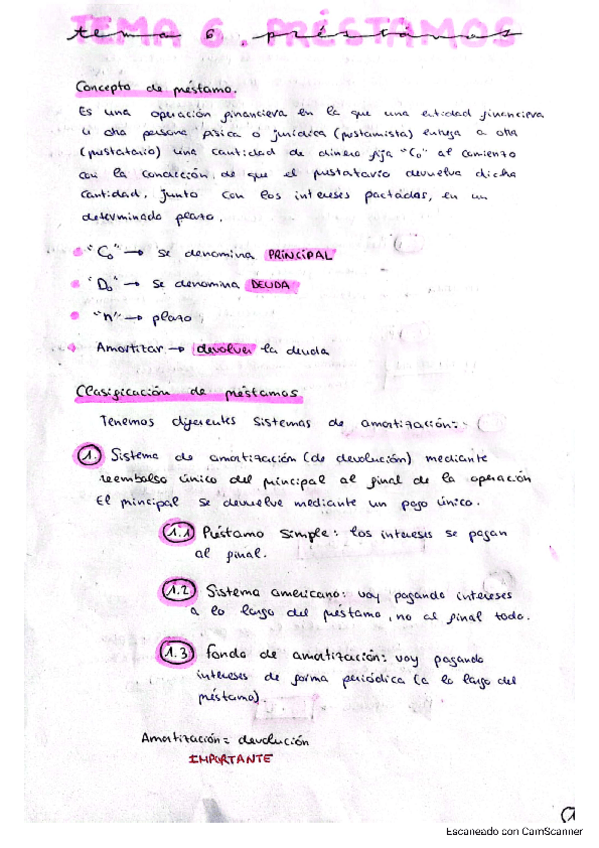 TEMA 6. PRÉSTAMOS
tema 6. préstamos
Concepto de préstamo.
Es una operación financiera en la que una entidad financiera
u otra persona física o jurídica (prestamista) entrega a otra
(prestatario) una cantidad de dinero fija "C₀" al comienzo
con la condición de que el prestatario devuelva dicha
cantidad, junto con los intereses pactados, en un
determinado plazo.
"C₀" → se denomina PRINCIPAL
"D₀" → se denomina DEUDA
"n" → plazo
Amortizar → devolver la deuda
Clasificación de préstamos
Tenemos diferentes sistemas de amortización:
1. Sistema de amortización (de devolución) mediante
reembolso único del principal al final de la operación
El principal se devuelve mediante un pago único.
1.1 Préstamo simple: los intereses se pagan
al final.
1.2 Sistema americano: voy pagando intereses
a lo largo del préstamo, no al final todo.
1.3 Fondo de amortización: voy pagando
intereses de forma periódica (a lo largo del
préstamo).
Amortización = devolución
IMPORTANTE
1
Escaneado con CamScanner